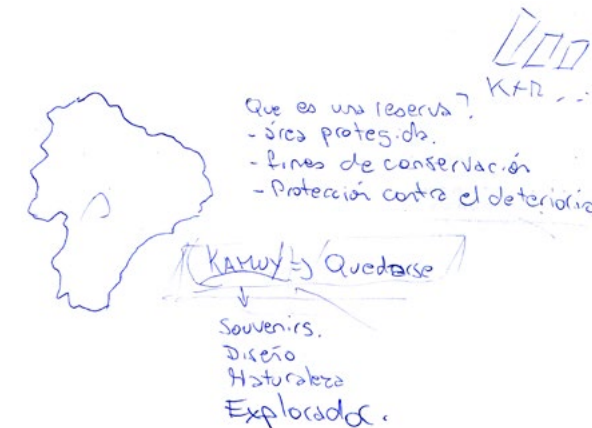 Que es una reserva?
- área protegida.
- fines de conservación
- Protección contra el deterioro
KAMUY => Quedarse
Souvenirs.
Diseño
Naturaleza
Explorador.